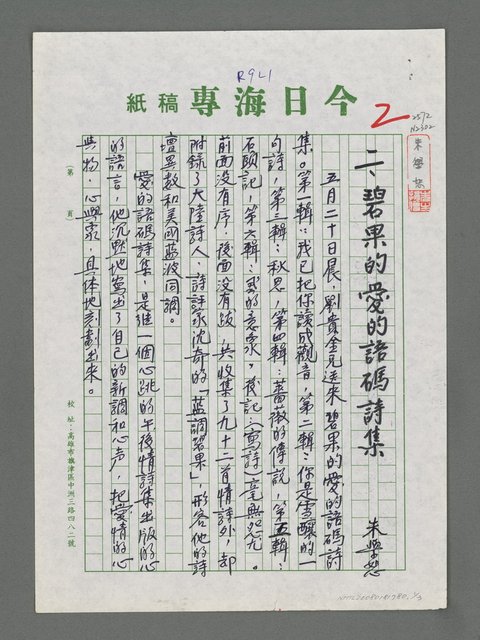 R9L1
今日海專稿紙
2
2572
N2302
朱學恕
二、碧果的愛的語碼詩集
朱學恕
五月二十日晨、劉貴金兄送來碧果的愛的語碼詩
集。第一輯：我已把你讀成觀音，第二輯：你是雪釀的一
句詩，第三輯：秋思，第四輯：薔薇的傳說，第五輯：
石頭記，第六輯：我的意象，後記：寫詩一毫無怨尤。
前面没有序，後面没有跋，共收集了九十二首情詩外，却
附錄了大陸詩人、詩評家沈奇的「藍調碧果」，形容他的詩
壇異数和美國藍波同調。
愛的語碼詩集，是繼一個心跳的午後情詩集出版的心
的語言，他沉默地寫出了自己的新調和心声，把愛情的心
與物，心與象，具体地刻劃出來。
第 頁
校址：高雄市旗津區中洲三路四八二號
NMTL20080181780. 1/3